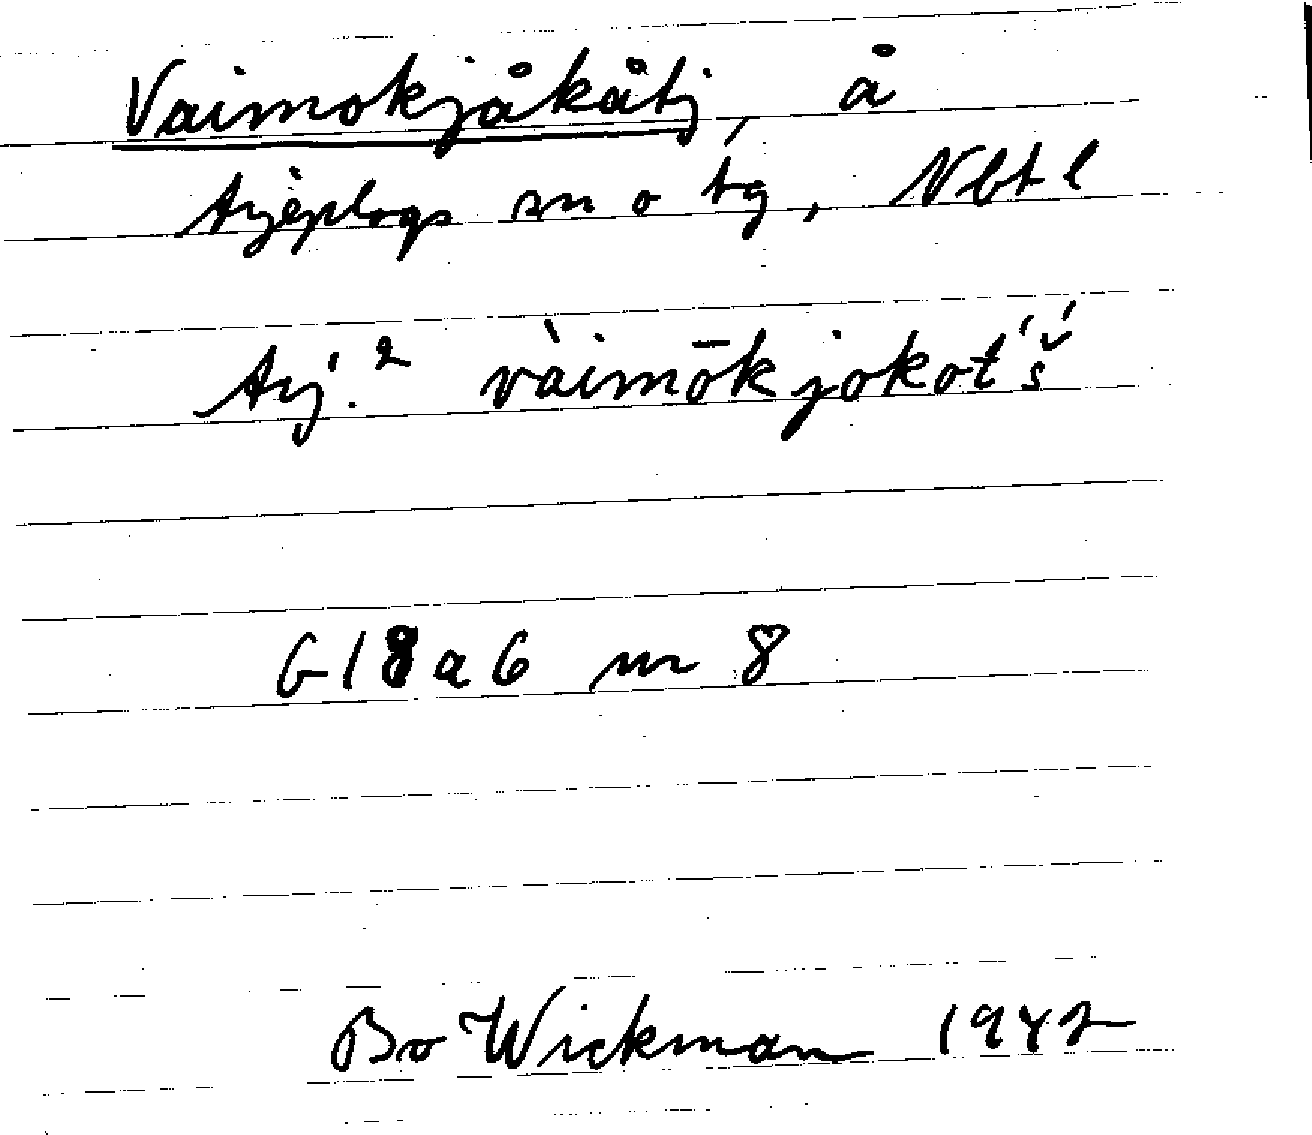 Vaimokjåkåtj, å
Arjeplogs sn o tg, Nbtl
Arj.² vàimōkjokot́š́
G18a6 nr 8
Bo Wickman 1942